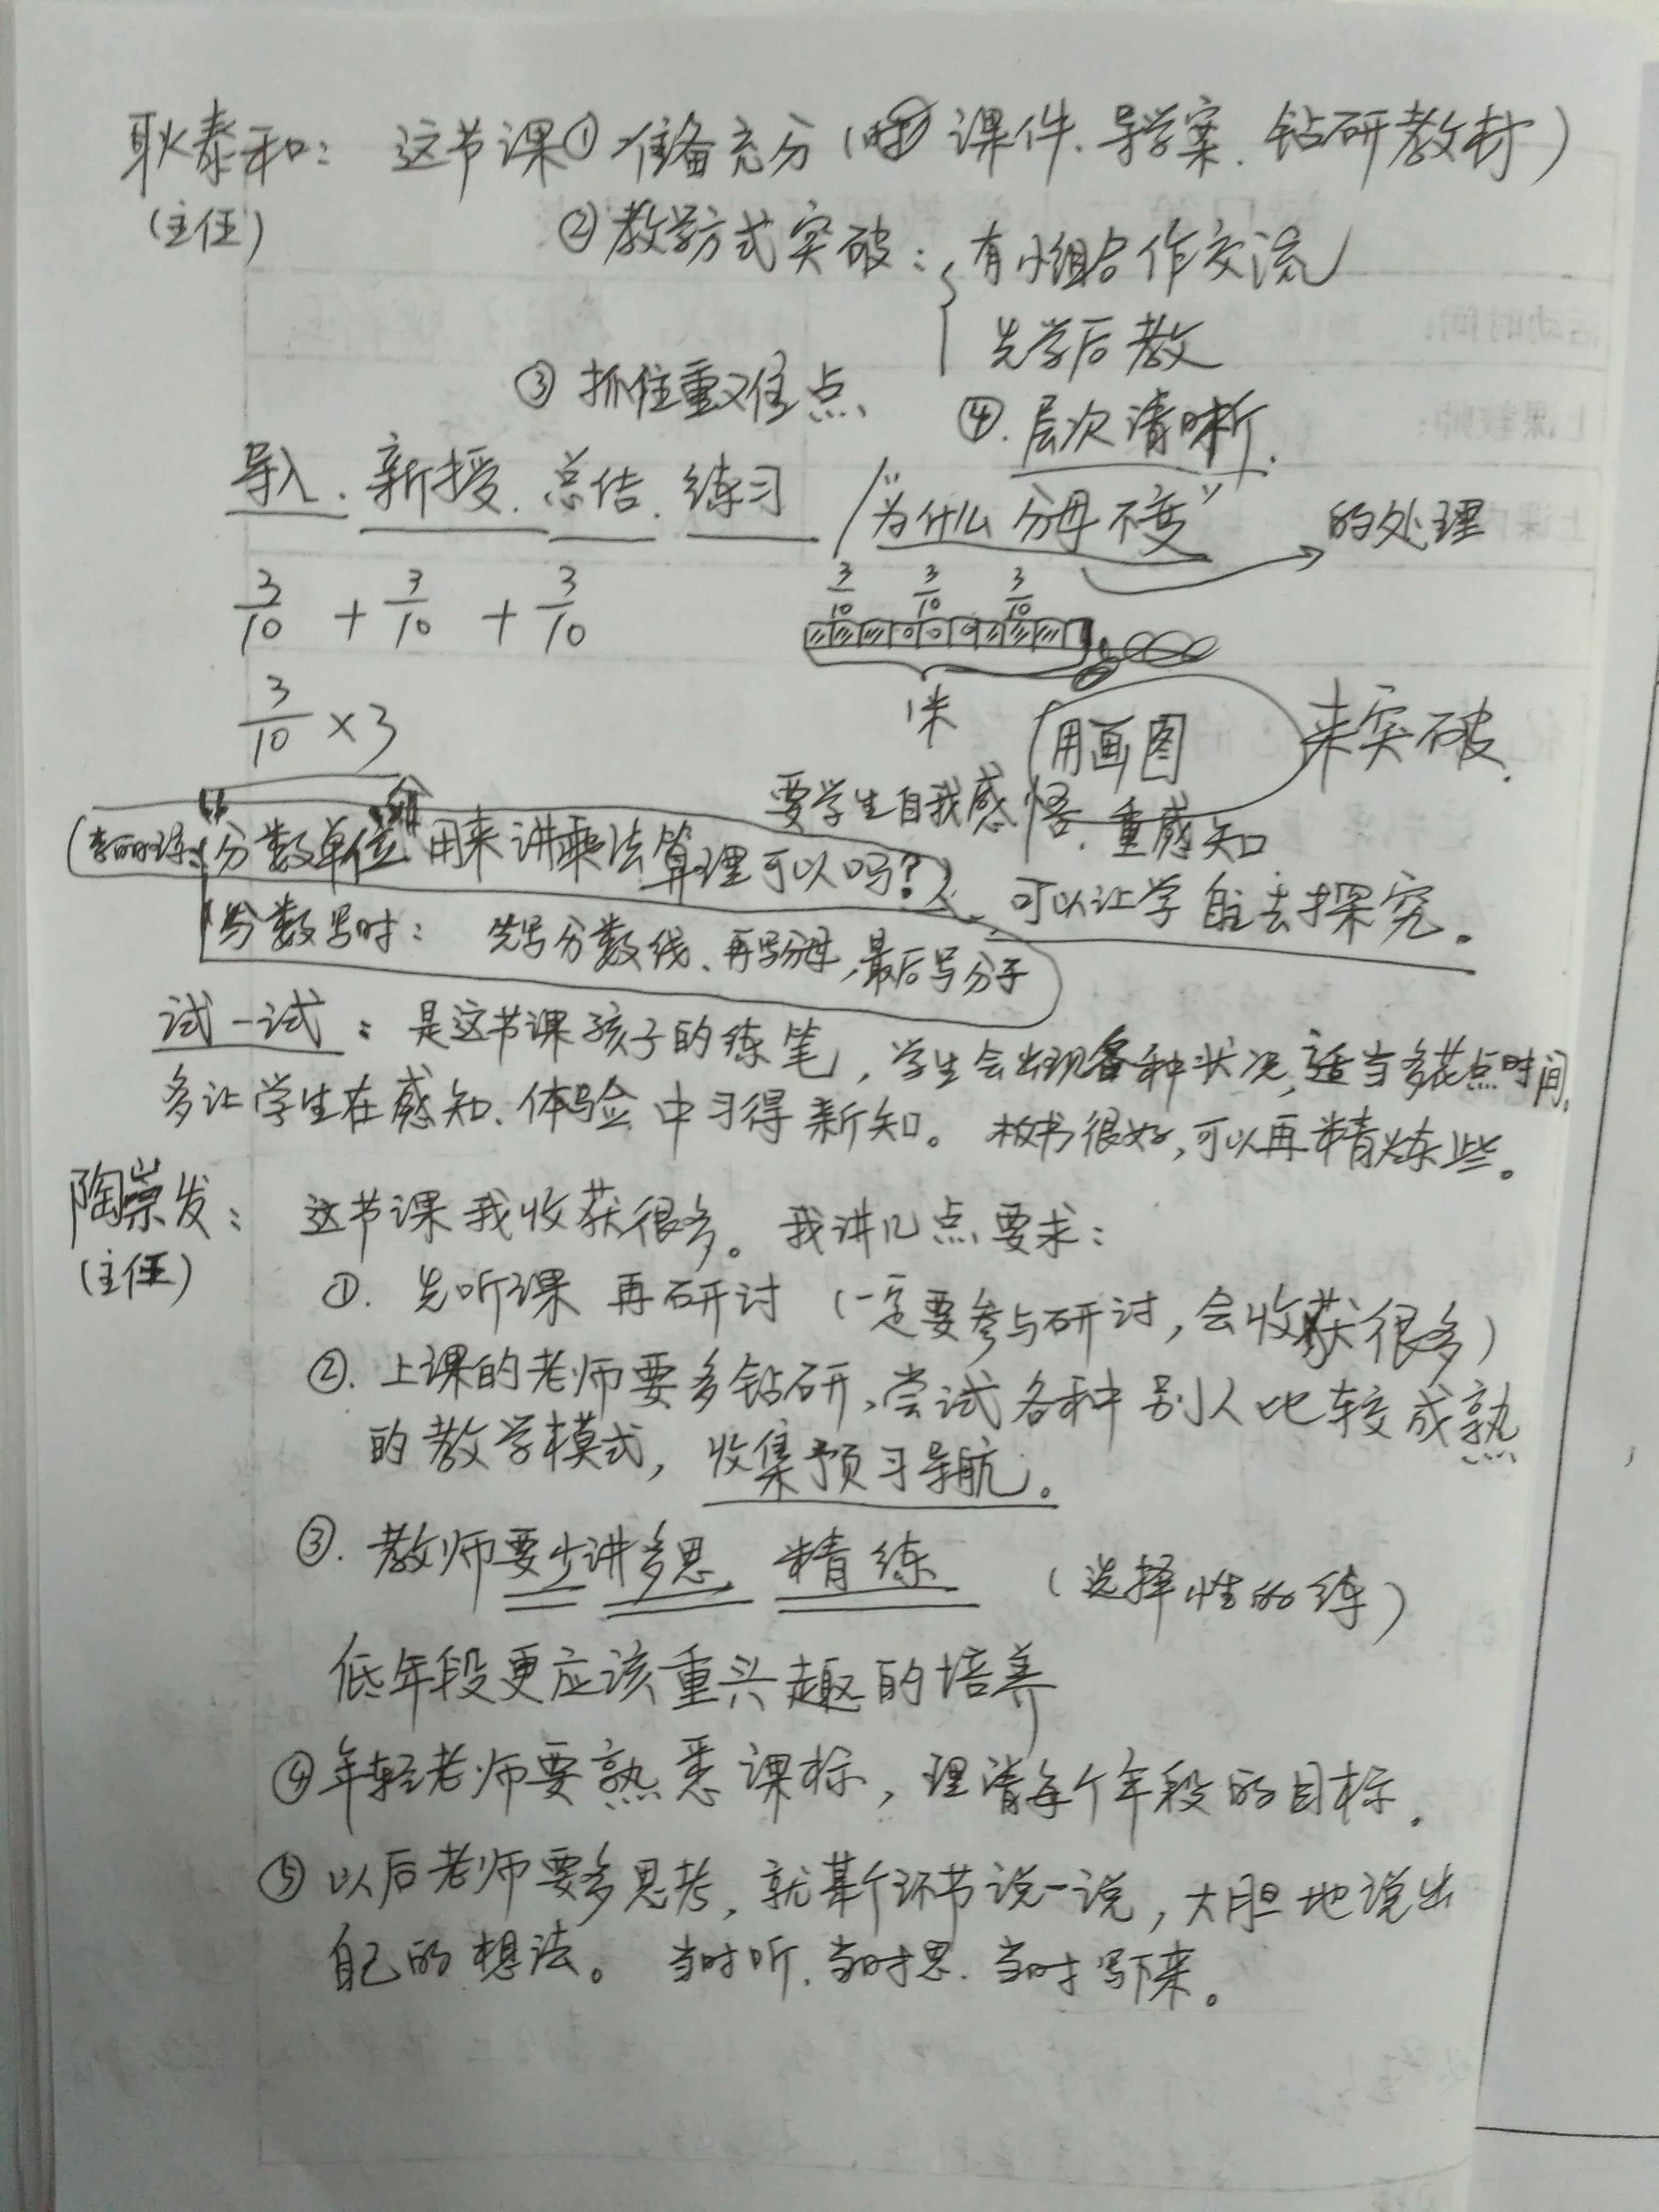 耿泰和: 这节课① 准备充分 ( 课件、导学案、钻研教材)
(主任)
② 教学方式突破: 有小组合作交流
先学后教
③ 抓住重难点
④. 层次清晰.
导入. 新授. 总结. 练习
“为什么分母不变” 的处理
3/10 + 3/10 + 3/10
3/10 3/10 3/10
1米
3/10 × 3
用画图 来突破.
要学生自我感悟. 重感知
“分数单位” 用来讲乘法算理可以吗?)
可以让学自主去探究。
分数写时: 先写分数线、再写分母,最后写分子
试一试: 是这节课孩子的练笔, 学生会出现各种状况, 适当多花点时间。
多让学生在感知、体验中习得新知。 板书很好,可以再精炼些。
陶崇发: 这节课我收获很多。我讲几点要求:
(主任)
①. 先听课 再研讨 (一定要参与研讨,会收获很多)
②. 上课的老师要多钻研,尝试各种别人比较成熟
的教学模式, 收集预习导航。
③. 教师要少讲多思, 精练 (选择性的练)
低年段更应该重兴趣的培养
④ 年轻老师要熟悉课标, 理清每个年段的目标.
⑤ 以后老师要多思考, 就某个环节说一说, 大胆地说出
自己的想法。 当时听. 当时思. 当时写下来。